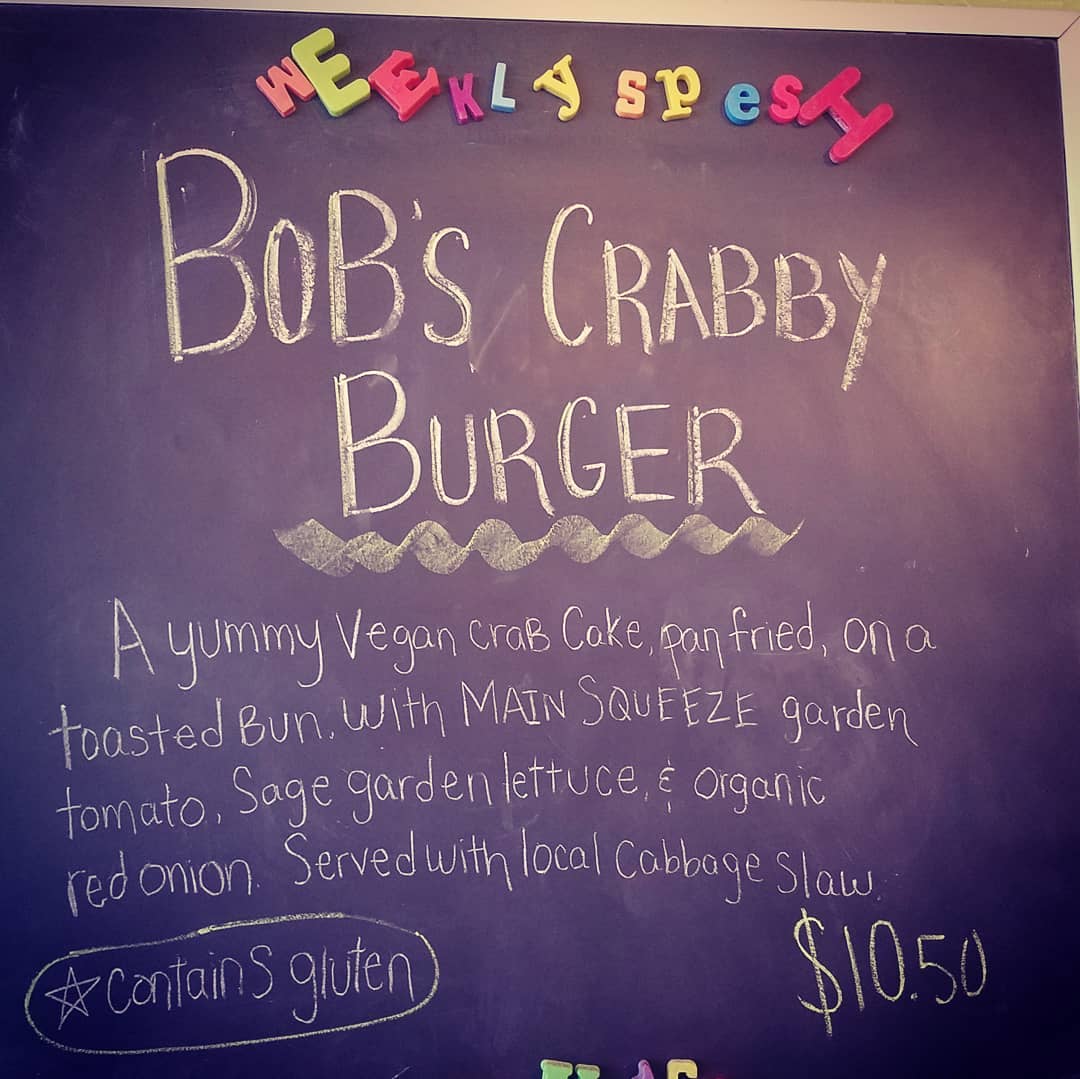 WEEKLY spesH
BOB'S CRABBY
BURGER
A yummy Vegan craB Cake, pan fried, on a
toasted Bun. With MAIN SQUEEZE garden
tomato, Sage garden lettuce, & organic
red onion. Served with local Cabbage Slaw.
☆contains gluten
$10.50